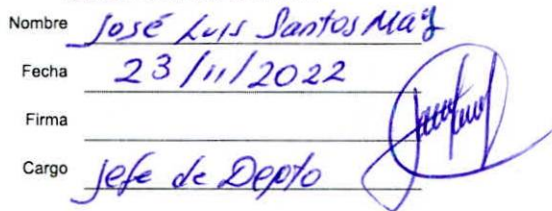 Nombre José Luis Santos May
Fecha 23/11/2022
Firma
Cargo jefe de Depto